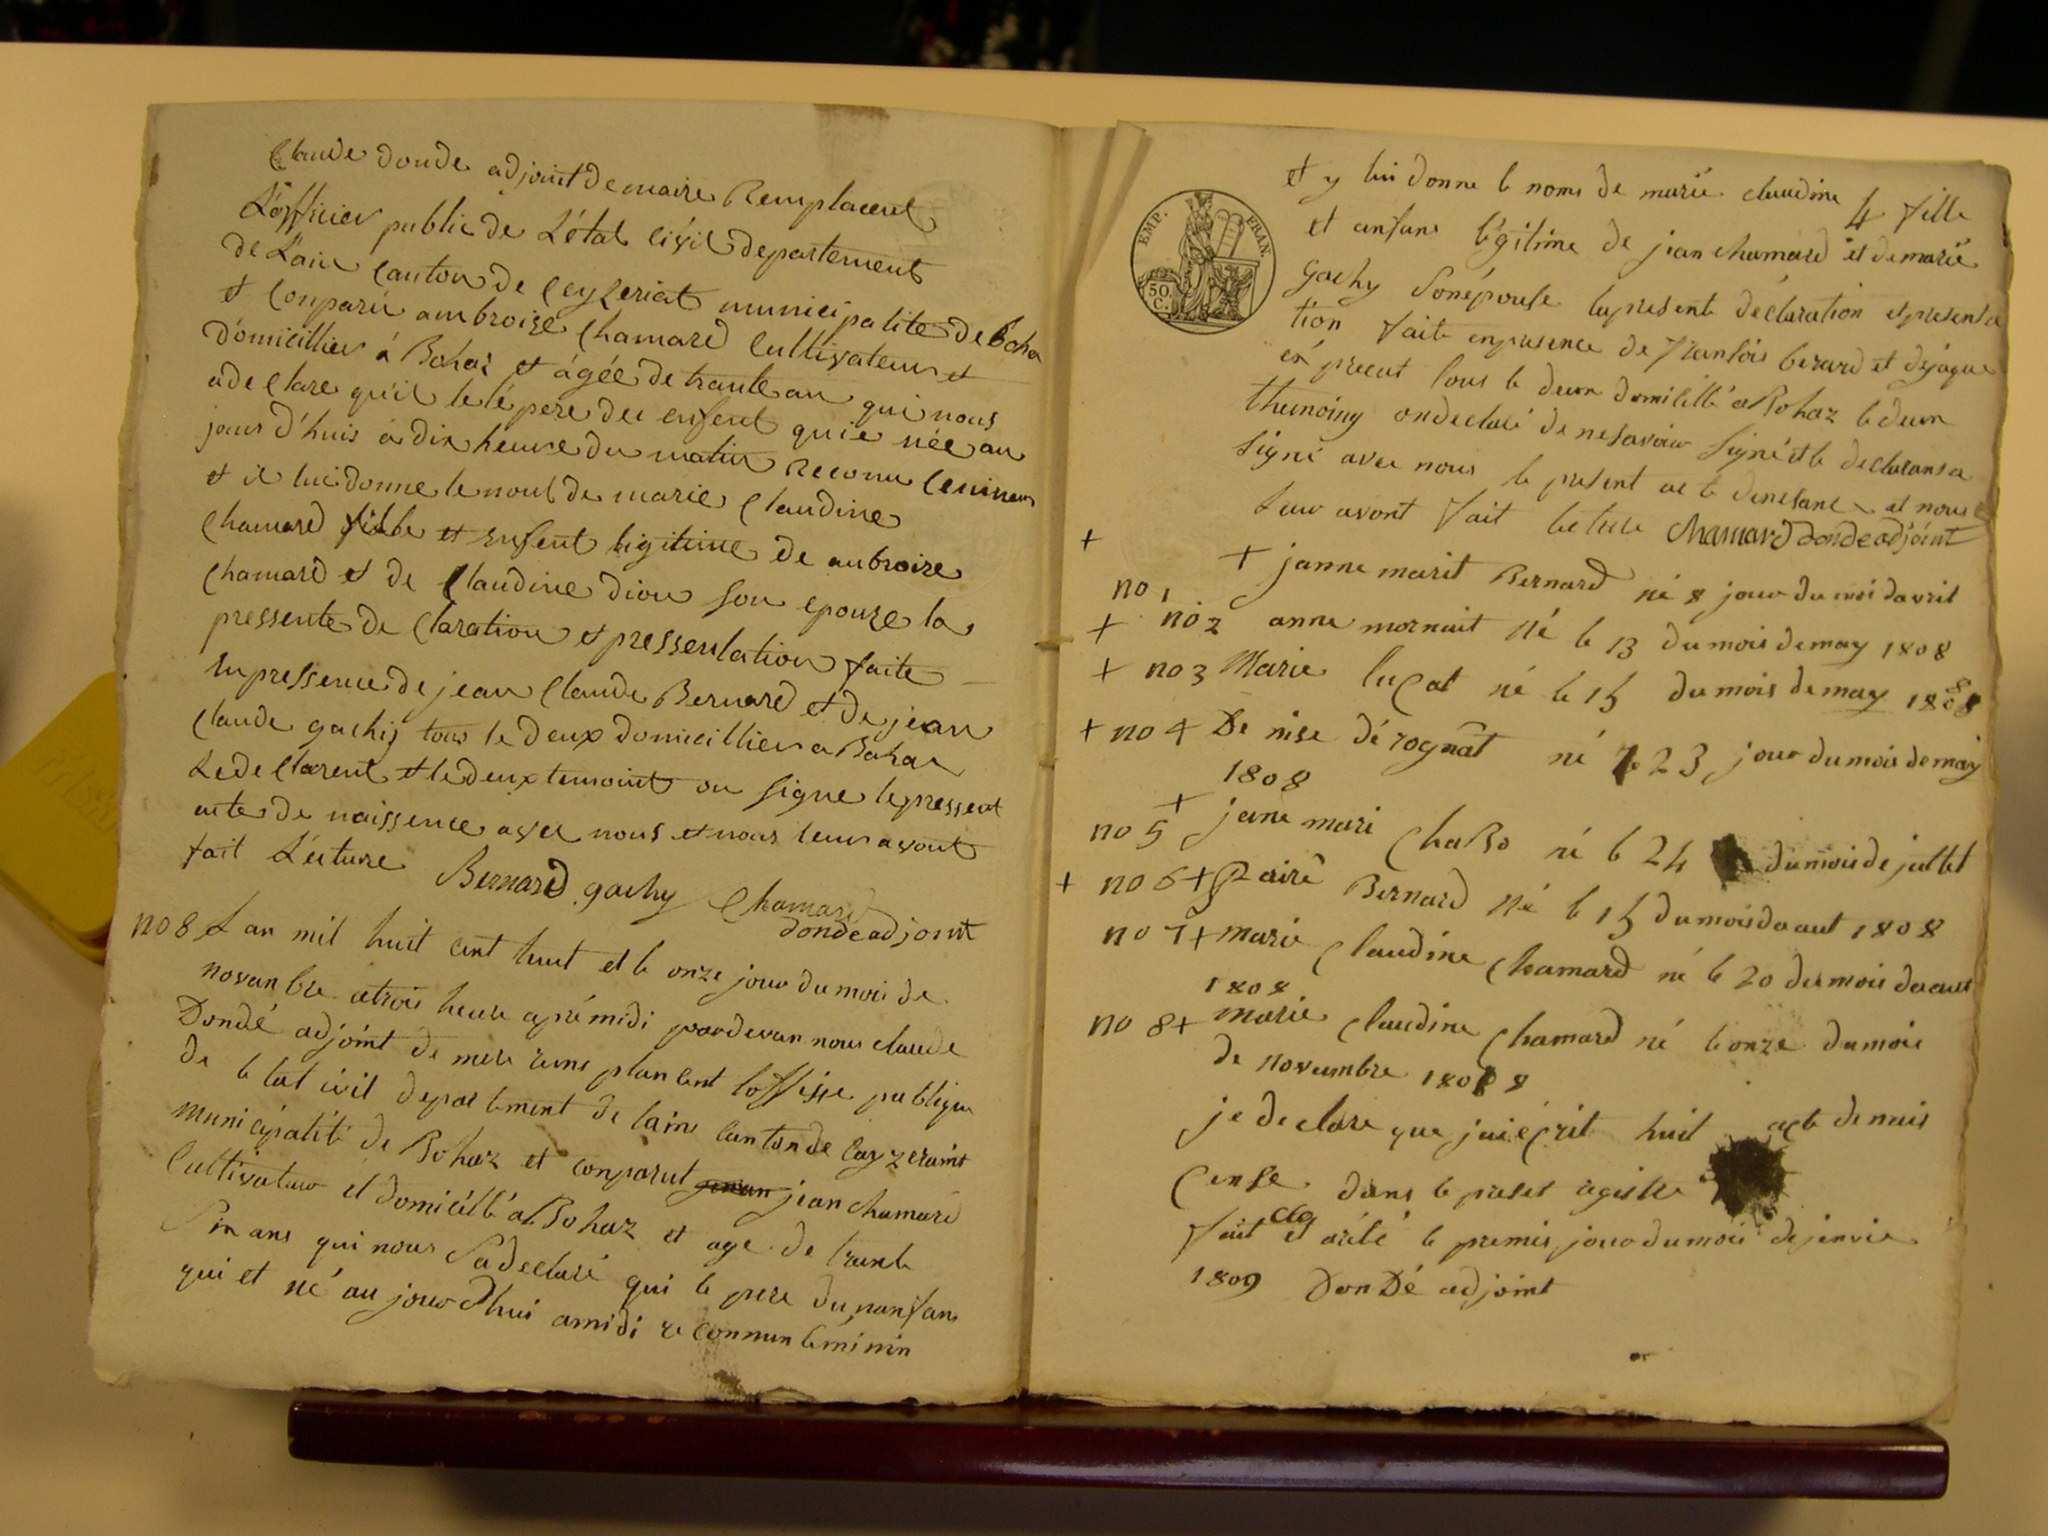 Claude donde adjoint de maire Remplacent
L'officier public de L'état civil departement
de L'ain Canton de Ceyzeriat municipalité de Boha
et Conparu ambroise Chamard Cultivateur et
domicillier á Bohaz et ágée de trante an qui nous
a de Clare quil le lé pere dei enfent quie née au
jour d'huis á dix heure du matin Reconu
et il lui donne le nous de marie Claudine
Chamard fille et enfent ligitime de anbroize
Chamard et de Claudine diou son epouze la
pressente de Claration et pressentation faite
en pressence de jean Claude Bernard et de jean
Claude gachij tous le deux domicillier a Bohaz
Le de Clarent et le deux temoint on signe le pressent
acte de naissence avec nous et nous leur avont
fait Lecture Bernard gachy Chamard
donde adjoint
no 8 L an mil huit cent huit et le onze jour du mois de
novanbre atrois heure aprémidi pardevan nous claude
Dondé adjoint de mere rans plan cent loffisje publique
de le tat ivil departement de lain canton de Cayzeraint
municipalité de Bohaz et conparut jean chamard
Cultivateur et domicillé a Bohaz et age de trante
Six ans qui nous Sadeclaré qui le pere dunanfans
qui et né au jourd'hui amidi re connun leminin
EMP. FRAN.
50 C.
et y lui donne le noms de marie claudine 4 fille
et anfans légitime de jean chamard et de marie
gachy Sonépouse lapresente déclaration et presenta
tion faite enpresence de franlois berard et dejaque
précat tous le deux domicillé a Bohaz le deux
themoing ondeclaré de nesavoir Signé et le declaransa
Signé avec nous le present acte denesance et nous
leur avont fait leture Chamard donde adjoint
+
no 1 + janne marit Bernard né 8 jour du moi davril
+ no 2 anne mornait né le 13 du mois de may 1808
+ no 3 Marie luçat né le 15 du mois de may 1808
+ no 4 De nise dérognat né le 23 jour du mois de may
1808
no 5 + jene mari Chabo né le 24 du mois de jullet
+ no 6 + Pairé Bernard né le 15 du mois da aut 1808
no 7 + marie Claudine Chamard né le 20 du mois da aut
1808
no 8 + marie Claudine Chamard né le onze du mois
de novembre 1808
je de clare que jai éçrit huit acte de nais
Cense dans le preset registre
fait et arété le premis jour du mois de jenvie
1809 DonDé adjoint